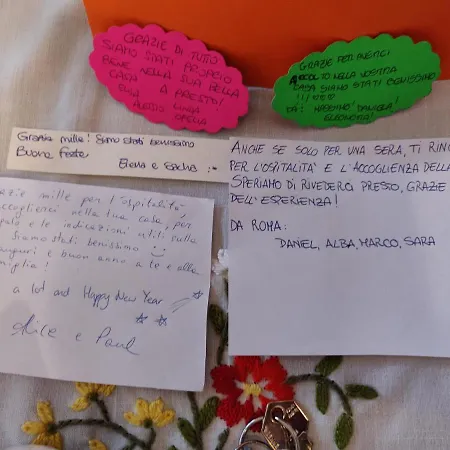 GRAZIE DI TUTTO
SIAMO STATI PROPRIO
BENE NELLA TUA BELLA
CASA
A PRESTO!
GRAZIE PER AVERCI
ACCOLTO NELLA VOSTRA
CASA SIAMO STATI BENISSIMO
DA: MASSIMO! DANIELA!
ELEONORA!
Grazie mille! Siamo stati benissimo
Buone feste.
Elena e Sacha :-)
ANCHE SE SOLO PER UNA SERA, TI RING
PER L'OSPITALITA' E L'ACCOGLIENZA DELLA
SPERIAMO DI RIVEDERCI PRESTO, GRAZIE
DELL'ESPERIENZA!
DA ROMA:
DANIEL, ALBA, MARCO, SARA
azie mille per l'ospitalità,
accoglierci nella tua casa, per
e le indicazioni utili sulla
Siamo stati benissimo
auguri e buon anno a te e alla
miglia!
a lot and Happy New Year
Alice e Paul